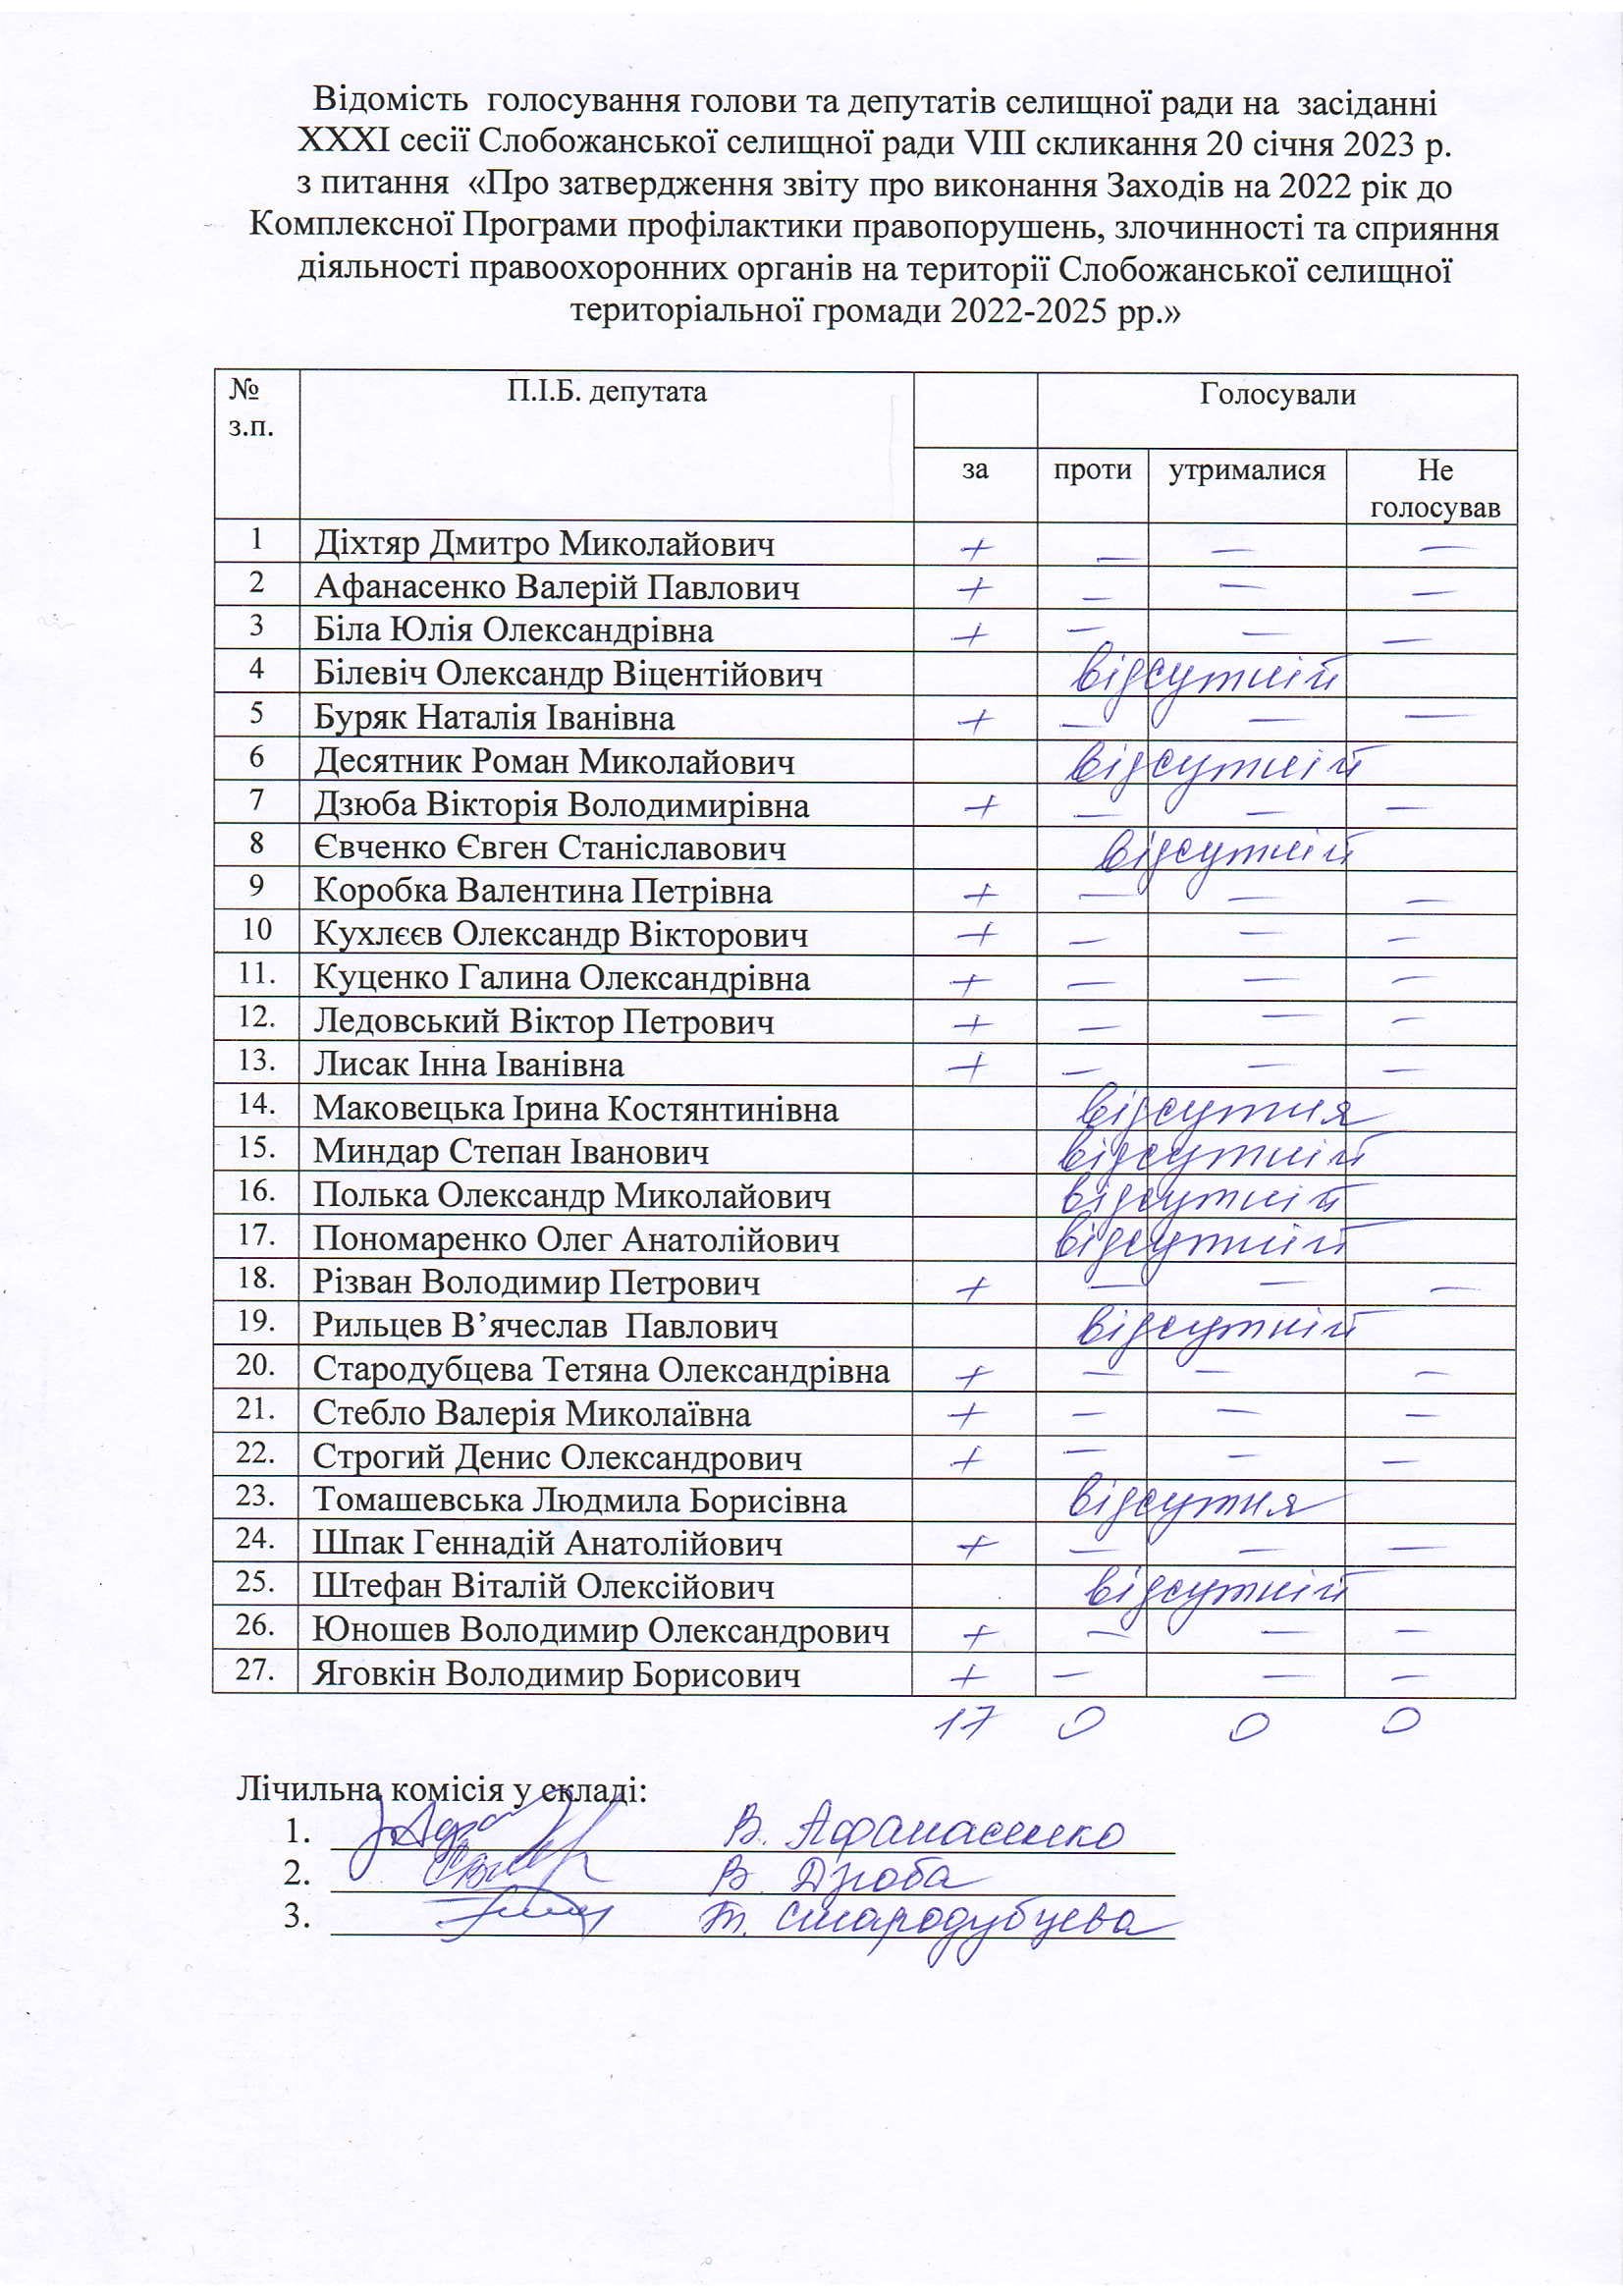 Відомість голосування голови та депутатів селищної ради на засіданні
XXXI сесії Слобожанської селищної ради VIII скликання 20 січня 2023 р.
з питання «Про затвердження звіту про виконання Заходів на 2022 рік до
Комплексної Програми профілактики правопорушень, злочинності та сприяння
діяльності правоохоронних органів на території Слобожанської селищної
територіальної громади 2022-2025 рр.»
№ з.п. П.І.Б. депутата Голосували
за проти утрималися Не голосував
1 Діхтяр Дмитро Миколайович + – – –
2 Афанасенко Валерій Павлович + – – –
3 Біла Юлія Олександрівна + – – –
4 Білевіч Олександр Віцентійович відсутній
5 Буряк Наталія Іванівна + – – –
6 Десятник Роман Миколайович відсутній
7 Дзюба Вікторія Володимирівна + – – –
8 Євченко Євген Станіславович відсутній
9 Коробка Валентина Петрівна + – – –
10 Кухлєєв Олександр Вікторович + – – –
11. Куценко Галина Олександрівна + – – –
12. Ледовський Віктор Петрович + – – –
13. Лисак Інна Іванівна + – – –
14. Маковецька Ірина Костянтинівна відсутня
15. Миндар Степан Іванович відсутній
16. Полька Олександр Миколайович відсутній
17. Пономаренко Олег Анатолійович відсутній
18. Різван Володимир Петрович + – – –
19. Рильцев В’ячеслав Павлович відсутній
20. Стародубцева Тетяна Олександрівна + – – –
21. Стебло Валерія Миколаївна + – – –
22. Строгий Денис Олександрович + – – –
23. Томашевська Людмила Борисівна відсутня
24. Шпак Геннадій Анатолійович + – – –
25. Штефан Віталій Олексійович відсутній
26. Юношев Володимир Олександрович + – – –
27. Яговкін Володимир Борисович + – – –
17 0 0 0
Лічильна комісія у складі:
1. В. Афанасенко
2. В. Дзюба
3. Т. Стародубцева